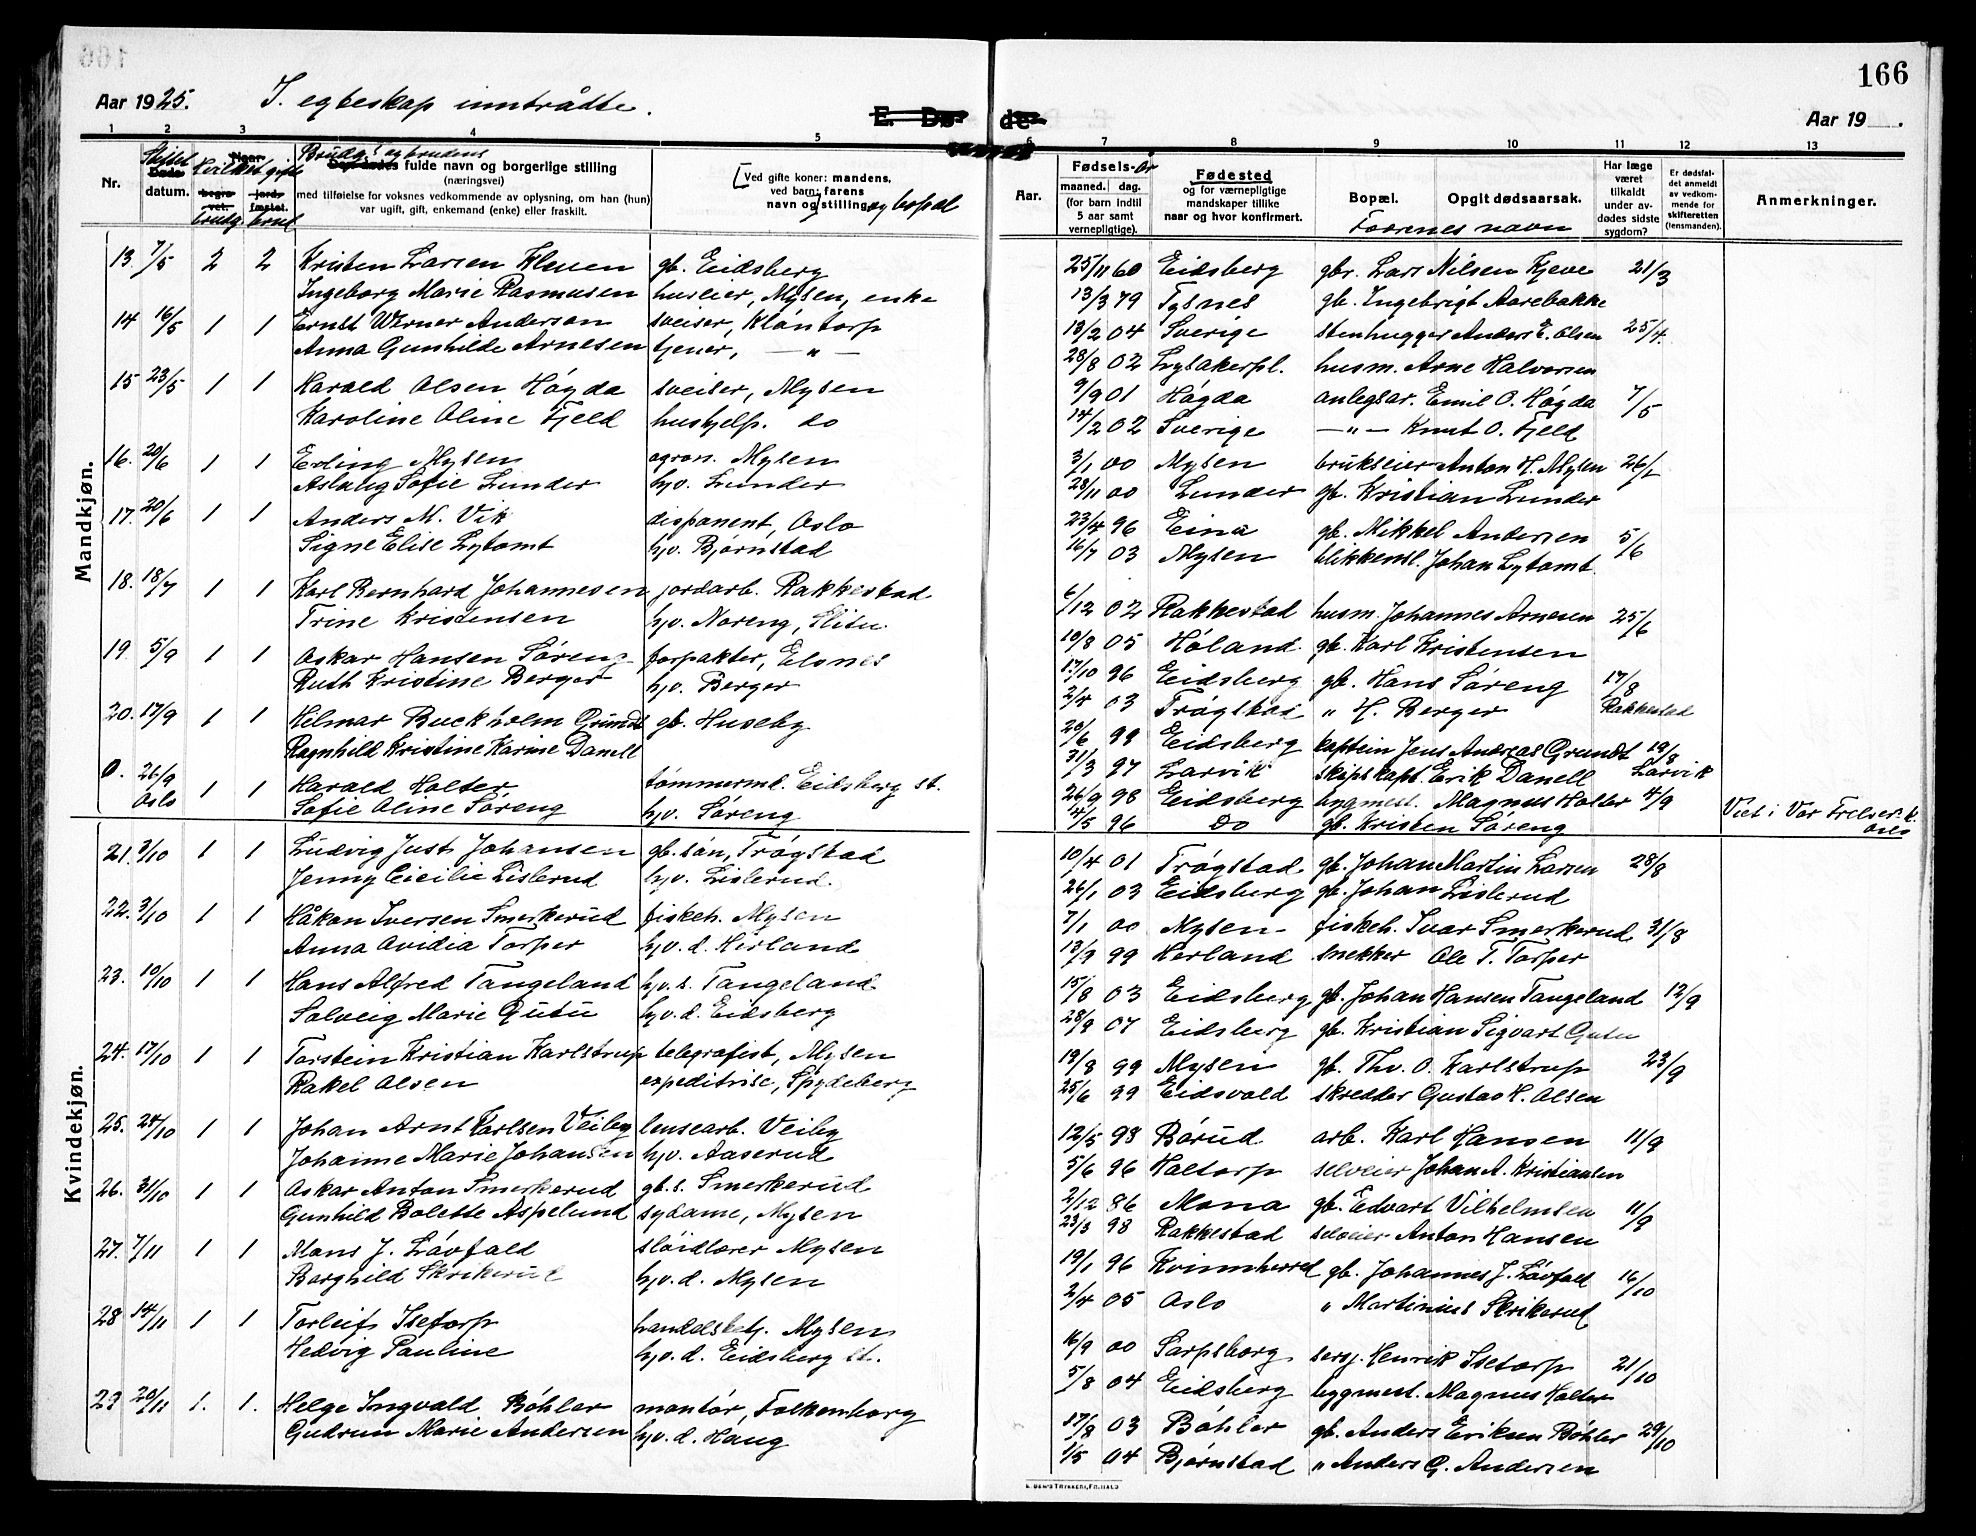 166
Aar 1925. I. egteskap inntrådte.
E. Dø- de
Aar 19 .
1 2 3 4 5 6 7 8 9 10 11 12 13
Nr.
datum.
Brudg.s og brudens fulde navn og borgerlige stilling
(næringsvei)
med tilføielse for voksnes vedkommende av oplysning, om han (hun)
var ugift, gift, enkemand (enke) eller fraskilt.
brudg. brud
Ved gifte koner: mandens,
ved barn: farens
navn og stilling og bopæl
Aar.
Fødsels- år
maaned. dag.
(for barn indtil
5 aar samt
vernepligtige).
Fødested
og for værnepligtige
mandskaper tillike
naar og hvor konfirmert.
Bopæl.
Opgit dødsaarsak.
Forenes navn
Har læge
været
tilkaldt
under av-
dødes sidste
sygdom?
Er dødsfal-
det anmeldt
av vedkom-
mende for
skifteretten
(lensmanden).
Anmerkninger.
Mandkjøn.
13. 7/5 2 2 Kristen Larsen Kleven gb. Eidsberg 25/11 60 Eidsberg gbr. Lars Nilsen Kjeve 21/3
Ingeborg Marie Rasmusen huseier, Mysen, enke 13/3 79 Tysnes gb. Ingebrigt Aarebakke
14 16/5 1 1 Ernst Werner Anderson sveiser, Kløntorp 13/2 04 Sverige stenhugger Anders E. Olsen 25/4.
Anna Gunhilde Arnesen tjener, — " — 28/8 02 Lysakerpl. husm. Arne Halvorsen
15 23/5 1 1 Harald Olsen Høgda sveiser, Mysen 9/9 01 Høgda anlegsar. Emil O. Høgda 7/5
Karoline Oline Fjeld hushjelp. do 14/2 02 Sverige — " — Knut O. Fjeld
16. 20/6 1 1 Erling Mysen agron. Mysen 3/1 00 Mysen brukseier Anton H. Mysen
Aslaug Sofie Lunder hjv. Lunder 28/11 00 Lunder gb. Kristian Lunder
17. 20/6 1 1 Anders M. Vik disponent, Oslo 23/4 96 Eina gb. Mikkel Andersen 5/6
Signe Elise Lytomt hjv. Bjørnstad 16/7 03 Mysen blikkensl. Johan Lytomt
18. 18/7 1 1 Karl Bernhard Johannesen jordarb. Rakkestad 6/12 02 Rakkestad husm. Johannes Arnesen 25/6
Trine Kristensen hjv. Noreng, Slitu 10/8 05 Høland. gb. Karl Kristensen
19 5/9 1 1 Oskar Hansen Søreng forpakter, Elsnes 17/10 96 Eidsberg gb. Hans Søreng 17/8
Ruth Kristine Berger hjv. Berger 2/4 03 Trøgstad " H. Berger Rakkestad
20. 17/9 1 1 Hilmar Buckholm Grundt gb. Huseby 20/6 99 Eidsberg kaptein Jens Andreas Grundt 19/8
Ragnhild Kristine Karine Danell 31/3 97 Larvik skipskapt. Erik Danell Larvik
0. 26/9 Oslo 1 1 Harald Holter tømmermd. Eidsberg st. 26/9 98 Eidsberg bygmest. Magnus Holter 4/9
Sofie Oline Søreng hjv. Søreng 14/5 96 Do gb. Kristen Søreng Viet i Vor Frelser. k. Oslo
Kvindekjøn.
21. 3/10 1 1 Ludvig Just Johansen gb. søn, Trøgstad 10/4 01 Trøgstad gb. Johan Martin Larsen 28/8
Jenny Cicilie Lislerud hjv. Lislerud. 26/1 03 Eidsberg gb. Johan Lislerud
22. 3/10 1 1 Håkon Iversen Smerkerud fiskeh. Mysen 7/1 00 Mysen fiskeh. Ivar Smerkerud 31/8
Anna Ovidia Torper hjv. d. Herland 13/9 99 Herland snekker Ole T. Torper
23. 10/10 1 1 Hans Alfred Tangeland hjv. s. Tangeland 15/8 03 Eidsberg gb. Johan Hansen Tangeland 12/9
Solveig Marie Gutu hjv. d. Eidsberg 28/9 07 Eidsberg gb. Kristian Sigvart Gutu
24. 17/10 1 1 Torstein Kristian Karlstrup telegrafist, Mysen 19/8 99 Mysen gb. Thv. O. Karlstrup 23/9
Rakel Olsen expeditrise, Spydeberg 25/6 99 Eidsvold skredder Gustav H. Olsen
25. 24/10 1 1 Johan Arnt Karlsen Veiby lensearb. Veiby 12/5 98 Børud arb. Karl Hansen 11/9
Johanne Marie Johansen hjv. Aaserud 5/6 96 Haltorp selveier Johan A. Kristiansen
26. 31/10 1 1 Oskar Anton Smerkerud gb. s. Smerkerud 2/12 86 Mona gb. Edvart Vilhelmsen 11/9
Gunhild Bolette Aspelund sydame, Mysen 23/3 98 Rakkestad selveier Anton Hansen
27. 7/11 1 1 Mons J. Løvfald sløidlærer Mysen 19/1 96 Kvinnherred gb. Johannes J. Løvfald 16/10
Borghild Skrikerud hjv. d. Mysen 2/4 05 Oslo " Martinius Skrikerud
28 14/11 1 1 Torleif Isetorp handelsbetj. Mysen 16/9 00 Sarpsborg sersj. Henrik Isetorp 21/10
Hedvig Pauline hjv. d. Eidsberg st. 5/8 04 Eidsberg bygmest. Magnus Holter
29 20/11 1. 1. Helge Ingvald Bøhler montør, Folkenborg 17/8 03 Bøhler gb. Anders Eriksen Bøhler 29/10
Gudrun Marie Andersen hjv. d. Haug 1/5 04 Bjørnstad " Anders G. Andersen